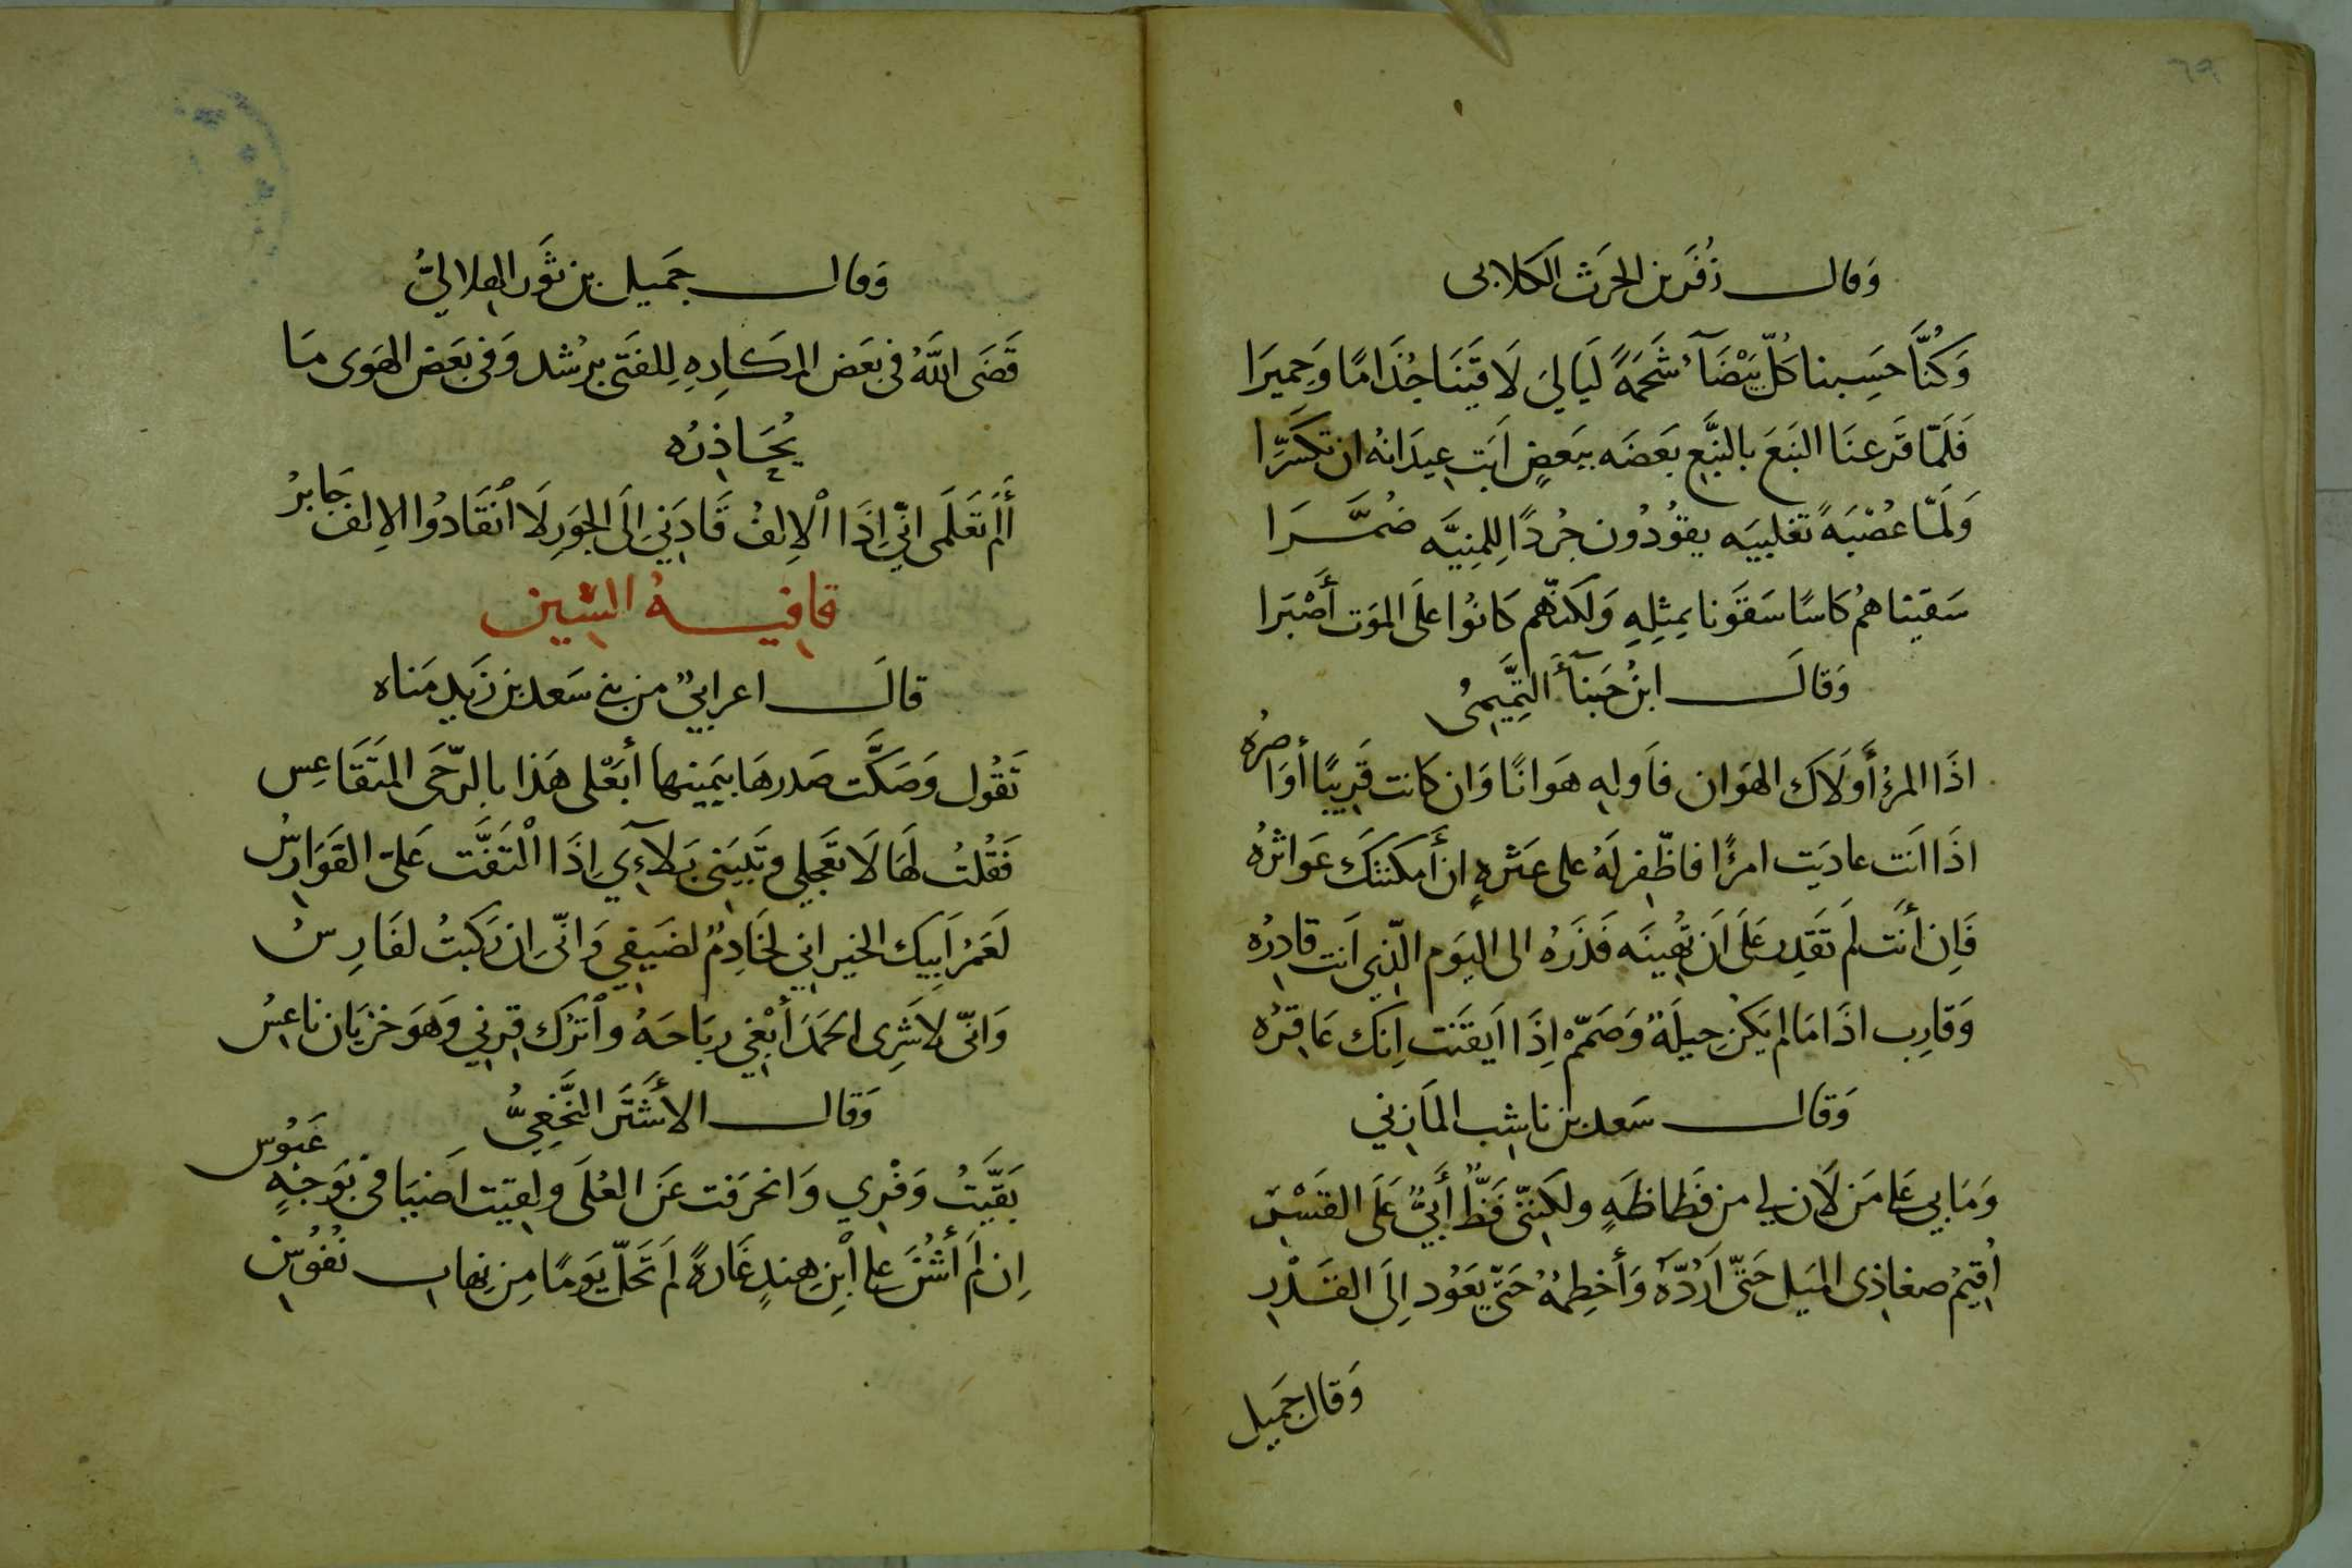 ٦٩
وَقال زُفَر بن الحرَث الكلابى
وَكُنَّا حَسِبنا كُلَّ بَيْضَآءَ شَحَمَةً لَيَالِىَ لَا قَيَنَا جُذَامًا وَحِميَرَا
فَلَمّا قَرعنَا النَبَعَ بالنَّبَعِ بَعَضَه ببَعضٍ اَبَت عِيدَانهُ ان تكَسَّرَا
وَلَمّا عُصْبَةً تغلبيَه يقوُدُون جُردًا لِلمِنيَّه ضُمَّرَا
سَقَيناهُم كَاسًا سَقَونا بمِثلِهِ وَلكنّهم كَانوُا عَلَى الموَت أَصْبَرَا
وَقَالَ ابنُ حَبنآءَ التَّمِيمىُ
اذَا المرءُ أَولَاكَ الهوَان فاَولهِ هَوَانًا وَان كانت قَرِيبًا أوَاصرُه
اذَا انَت عاديَت امرًا فاظّفر لَهُ على عَثرهٍ ان أَمكَنَتكَ عَواثرُهُ
فَاِن أنَت لَم تَقَدِر عَلَى اَن تُهينَه فَذَرَهُ الى اليَوم الّذِى اَنت قَادِرُه
وَقَارِب اذَا مَا لم يَكُن حِيلَةٌ وَصَمّم اِذَا اَيقَنَت اِنكَ عَاقرُه
وَقال سَعد بن ناشِب المَازِني
وَمَا بِي عَلى مَن لَان لي من فَظاظَهٍ ولكِنّنى فَظٌّ أَبِيٌّ عَلَى القَسْرِ
اُقيمُ صغاذِى الميَل حَتّى اَرُدَّهُ وَأَخطِمُهُ حَتّى يَعَوُد اِلَى القَدْرِ
وَقال جَميل
وَقال جَميل بن ثَور الهِلالىُّ
قَضَى اللَّهُ فى بَعَض المكَارِهِ لِلفَتَى برُشد وَفى بعَض الهَوَى مَا
يُحَاذِرُه
أَلَم تَعَلَمى انّي اِذَا الْاِلفُ قَادَنِي اِلَى الجَورِ لَا اَنقَادوُا الاِلف جَابِرُ
قافيةُ السّين
قالَ اعرابيٌ من بنى سَعد بن زَيد مَناه
تَقُول وَصَكَّت صَدرهَا بيَمينها أبَعْلى هَذا بالرّحَى المتَقَاعِس
فَقُلتُ لهَا لَا تعَجَلي وتَبيَنى بَلآءِي اِذَا الْتَفَّت عَلىّ الفَوَارِسُ
لَعَمرُ اَبِيك الخير انى لخَادِمٌ لضَيفِي وَانّى اِن رَكبتُ لفَارِسُ
وَانّى لاشَرِى الحمَدَ أبْغي ربَاحَهُ واَترُك قِرني وَهوَ خزيَان نَاعِسُ
وَقال الأَشتَر النَّخَعِىُّ
بَقَيَّتُ وَفْرِي وَانحرَفت عَنَ العُلَى ولَقيَت اَضيَافى بوَجَهِ عَبوُس
اِن لَم أَشُنَّ على اْبِن هِندٍ غَارةً لَم تَخلُ يَومًا مِن نِهاب نُفوُسِ